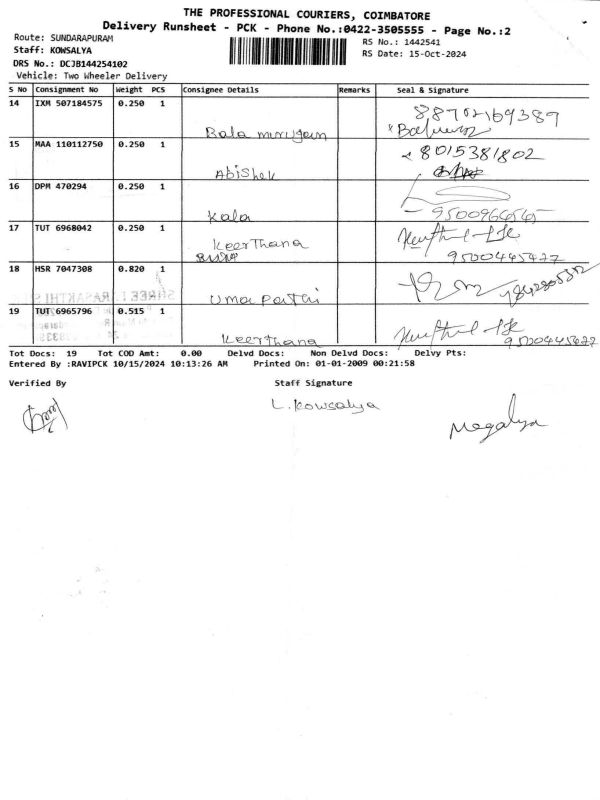 THE PROFESSIONAL COURIERS, COIMBATORE
Delivery Runsheet - PCK - Phone No.:0422-3505555 - Page No.:2
Route: SUNDARAPURAM
RS No.: 1442541
Staff: KOWSALYA
RS Date: 15-Oct-2024
DRS No.: DCJB144254102
Vehicle: Two Wheeler Delivery
S No Consignment No Weight PCS Consignee Details Remarks Seal & Signature
14 IXM 507184575 0.250 1
Bala murugan
15 MAA 110112750 0.250 1 8015381802
Abishek
16 DPM 470294 0.250 1
Kala
17 TUT 6968042 0.250 1
Keerthana 9500445477
18 HSR 7047308 0.820 1
Uma Pathi
19 TUT 6965796 0.515 1
Keerthana
Tot Docs: 19 Tot COD Amt: 0.00 Delvd Docs: Non Delvd Docs: Delvy Pts:
Entered By :RAVIPCK 10/15/2024 10:13:26 AM Printed On: 01-01-2009 00:21:58
Verified By Staff Signature
L. Kowsalya
Megalya